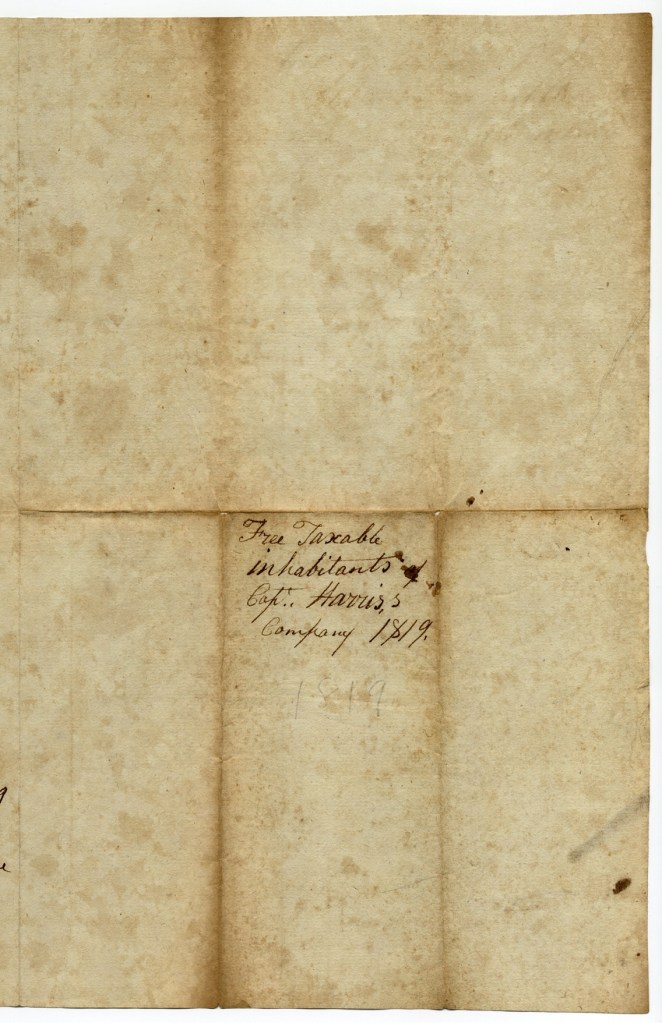 Free Taxable
inhabitants of
Capt.. Harris,s
Company 1819.
1819